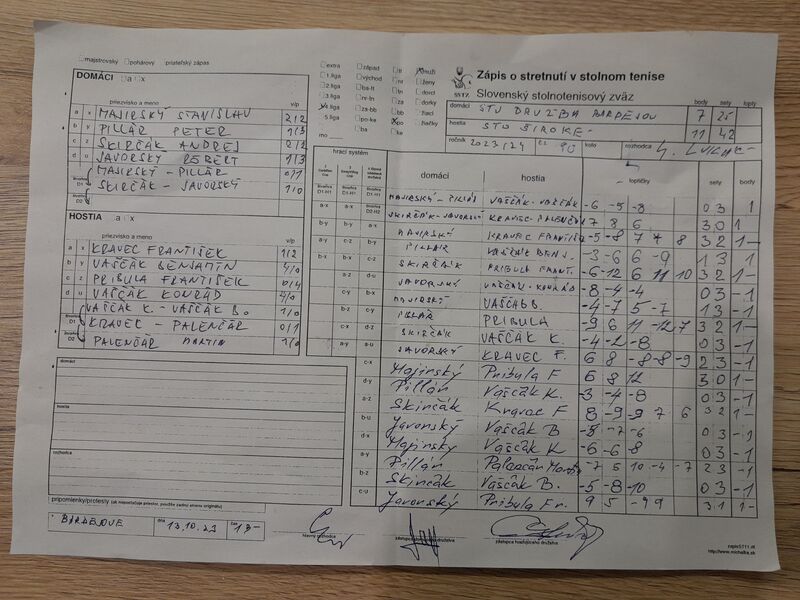 majstrovský pohárový priateľský zápas
DOMÁCI a x
priezvisko a meno v/p
a x MAJIRSKÝ STANISLAV 2/2
b y PILLÁR PETER 1/3
c z SKIRČÁK ANDREJ 2/2
d u JAVORSKÝ RÓBERT 1/3
štvorhra D1 MAJIRSKÝ - PILLÁR 0/1
štvorhra D2 SKIRČÁK - JAVORSKÝ 1/0
HOSTIA a x
priezvisko a meno v/p
a x KRAVEC FRANTIŠEK 1/2
b y VAŠČÁK BENJAMÍN 4/0
c z PRIBULA FRANTIŠEK 0/4
d u VAŠČÁK KONRÁD 4/0
štvorhra D1 VAŠČÁK K. - VAŠČÁK B. 1/0
KRAVEC - PALENČÁR 0/1
štvorhra D2 PALENČÁR MARTIN 1/0
domáci
hostia
rozhodca
pripomienky/protesty (ak nepostačuje priestor, použite zadnú stranu originálu)
BARDEJOVE dňa 13.10.23 čas 17-
extra západ muži
1.liga východ ženy
2.liga ba-tt dorci
3.liga nr-tn dorky
4.liga za-bb žiaci
5.liga po-ke po žiačky
ba ke
mo
SSTZ
Zápis o stretnutí v stolnom tenise
Slovenský stolnotenisový zväz
body sety lopty
domáci STO DRUŽBA BARDEJOV 7 25
hostia STO ŠIROKÉ 11 42
ročník 2023/24 kolo rozhodca
hrací systém
domáci hostia loptičky sety body
štvorhra D1-H1 MAJIRSKÝ - PILLÁR VAŠČÁK - VAŠČÁK -6 -5 -8 0 3 1
a-x SKIRČÁK - JAVORSKÝ KRAVEC - PALENČÁR 7 8 6 3.0 1
b-y MAJIRSKÝ KRAVEC FRANTIŠE -5 -8 7 7 8 3 2 1-
PILLÁR VAŠČÁK BEN. -3 -6 6 -9 1 3 1
SKIRČÁK PRIBULA FRANT. -6 -12 6 11 10 3 2 1-
JAVORSKÝ VAŠČÁK KONRÁD -8 -4 -4 0 3 -1
MAJIRSKÝ VAŠČÁK B. -4 -7 5 -7 1 3 -1
PILLÁR PRIBULA -9 6 11 -12 7 3 2 1-
SKIRČÁK VAŠČÁK K. -4 -2 -8 0 3 -1
JAVORSKÝ KRAVEC F. 6 8 -8 -8 -9 2 3 -1
c-x Majirský Pribula F 6 8 12 3.0 1-
d-y Pillár Vaščák K. -3 -4 -8 0 3 -1
a-z Skirčák Kravec F 8 -9 -9 7 6 3 2 1-
b-u Javorský Vaščák B -5 -7 -6 0 3 -1
d-x Majirský Vaščák K -6 -6 8 0 3 -1
a-y Pillár Palenčár Martin -7 5 10 -4 -7 2 3 -1
b-z Skirčák Vaščák B. -5 -8 -10 0 3 -1
c-u Javorský Pribula Fr. 9 5 -9 9 3 1 1-
hlavný rozhodca
zástupca domáceho družstva
zástupca hosťujúceho družstva
zapisST11.dt
http://www.michalka.sk